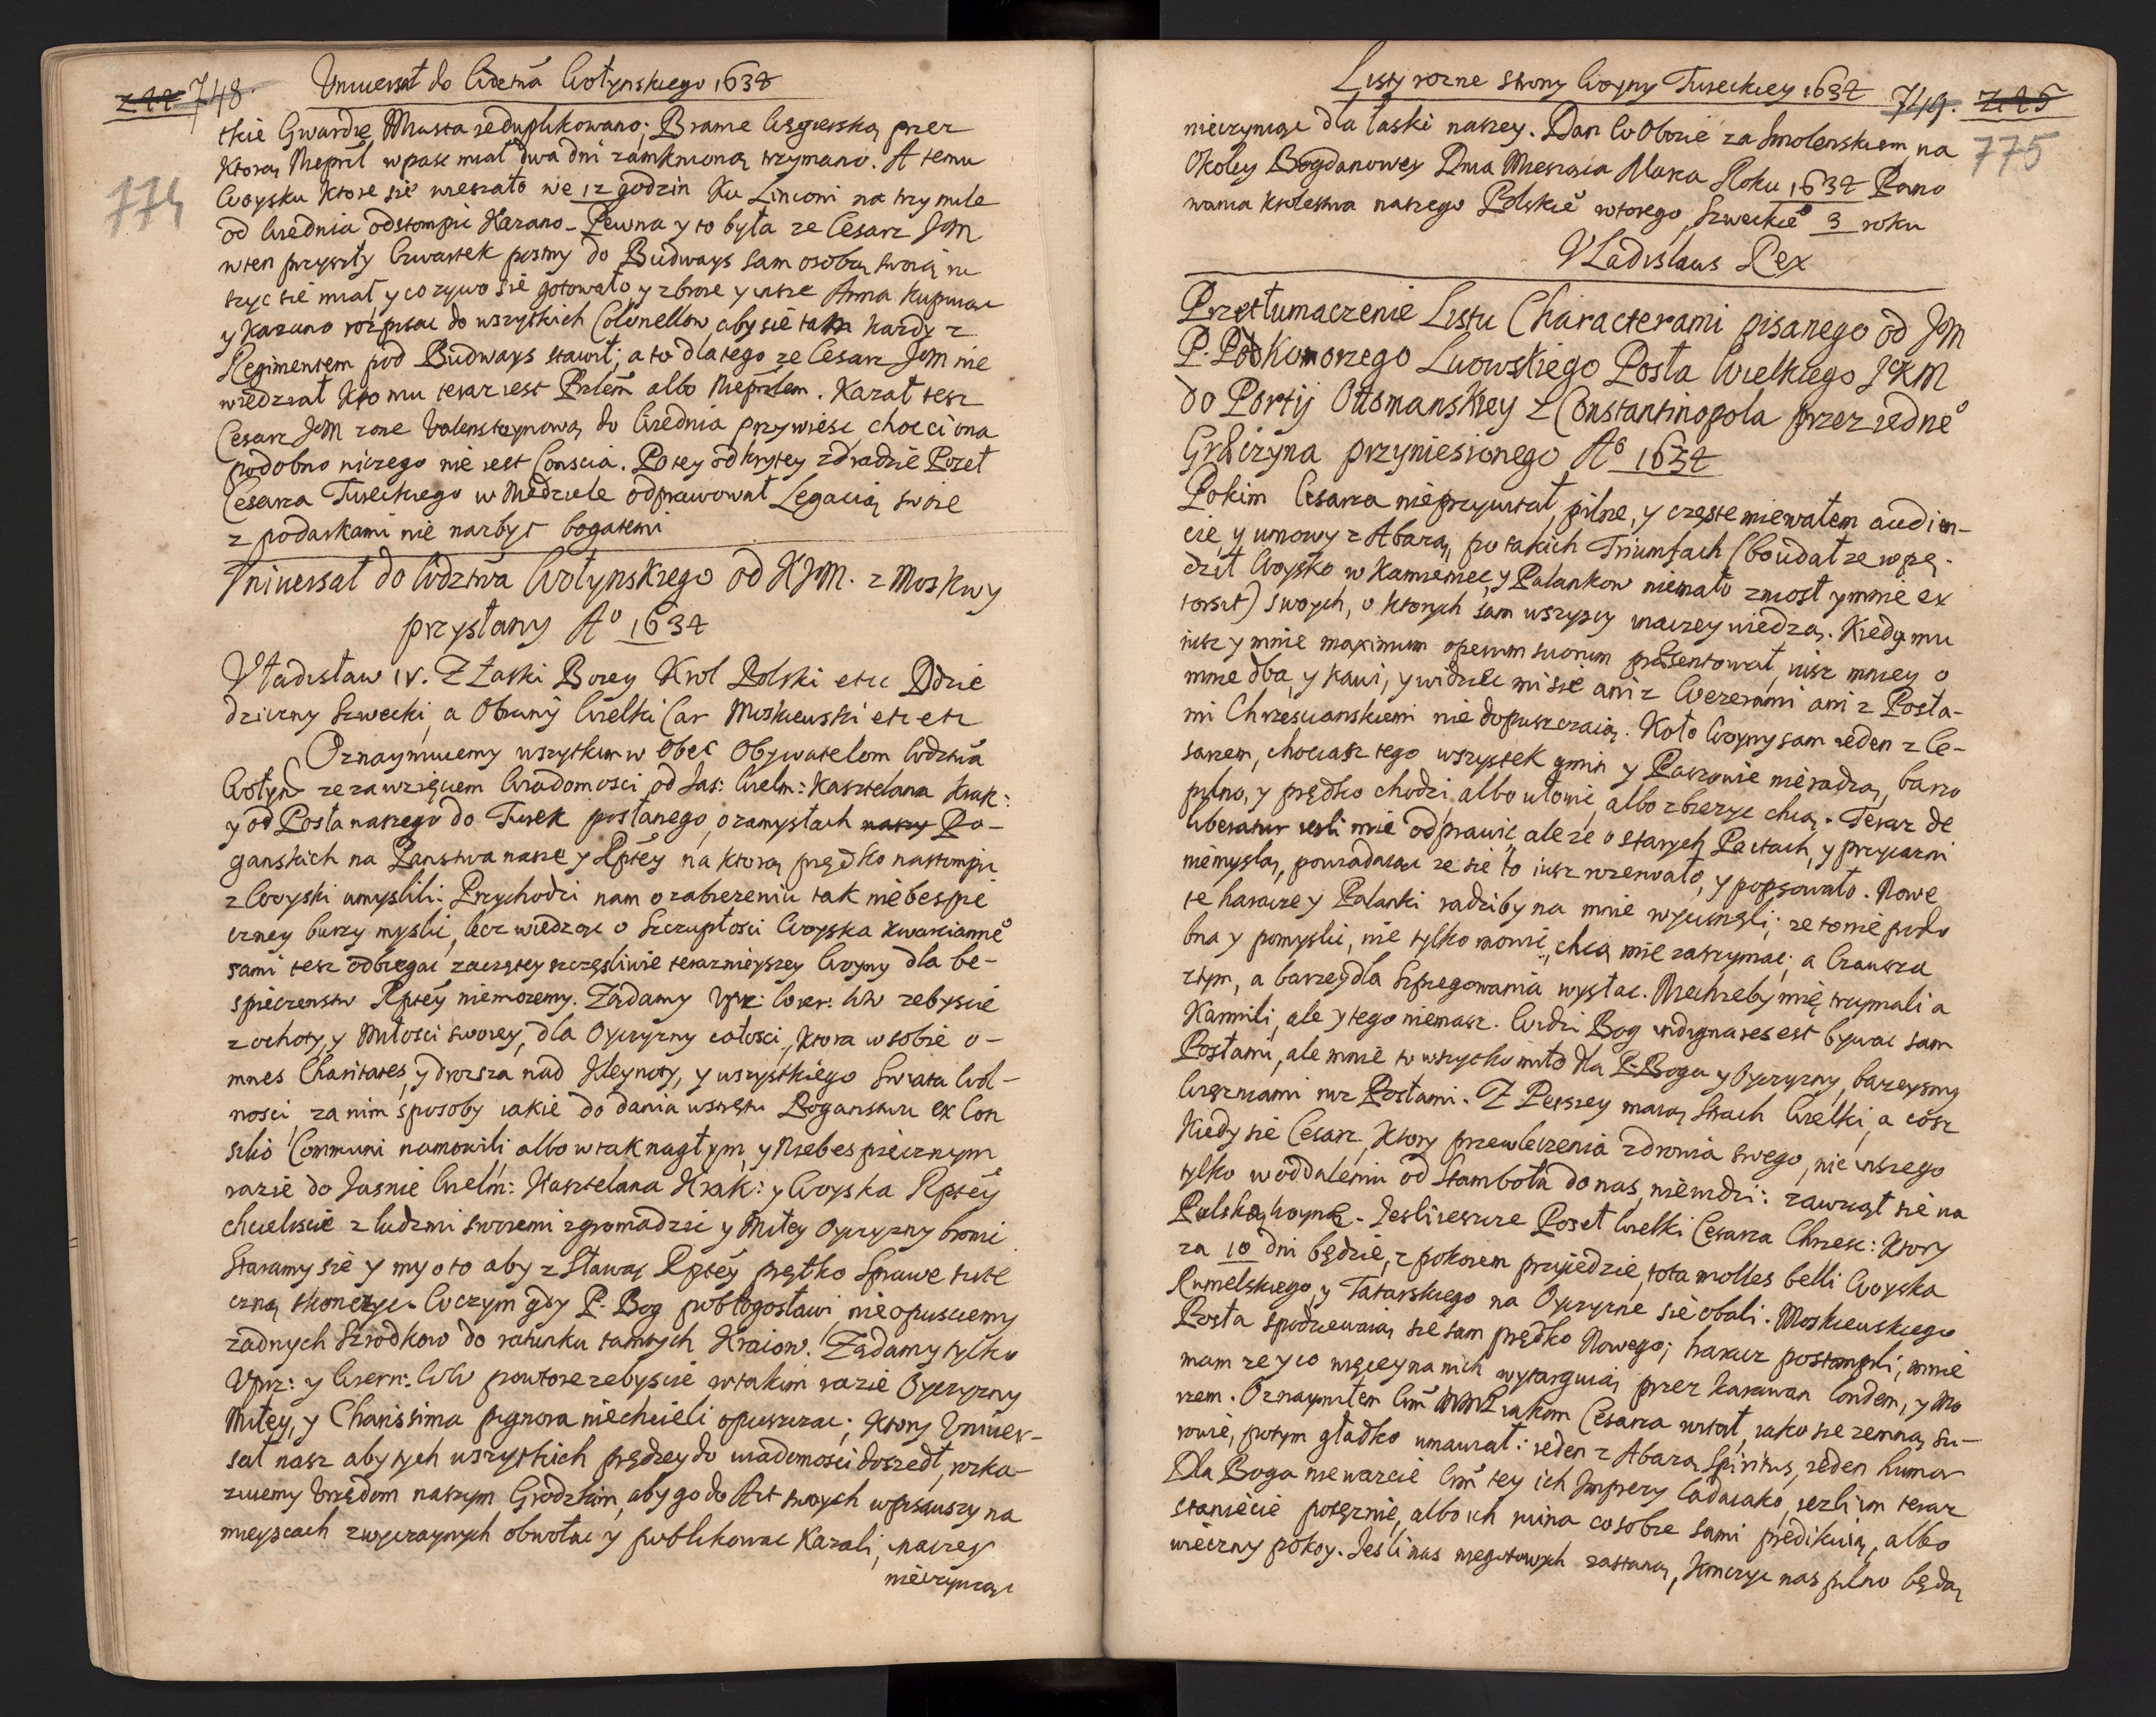 748. Uniwersał do Wdztwa Wołynskiego 1634
774
tkie Gwardię Miasta reduplikowano; Brame Węgierską przez
ktorą Nieprźl wpasc miał dwa dni zamknioną trzymano. A temu
Woysku ktore się wieszało we 12 godzin ku Linconi na trzy mile
od Wiednia odstompic Kazano. Pewna y to była ze Cesarz JoM
wten przyszły Czwartek posmy do Budways sam osobą swoią ru
szyc się miał, y co zywo się gotowało y zbroie y insze Arma kupuiąc
y Kazano rozpisac do wszytkich Colonellow, aby się tam kazdy z
Regimentem pod Budways stawił; a to dlatego ze Cesarz JoM nie
wiedział kto mu teraz iest Przlem albo Nieprzlem. Kazał tesz
Cesarz JoM zone Valensteynową do Wiednia przywiesc chocci ona
podobno niczego nie iest Conscia. Po tey odkrytey zdradzie Poseł
Cesarza Tureckiego w Niedziele odprawował Legacią swoie
z podarkami nie narbyt bogatemi
Uniuersał do Wdztwa Wołynskiego od KJM. z Moskwy
przysłany Ao 1634
Vładisław IV. Z Łaski Bozey Krol Polski etc Ddzie
dziczny Szwecki, a Obrany Wielki Car Moskiewski etc etc
Oznaymuiemy wszytkim w obec Obywatelom Wdztwa
Wołyń ze zawzięciem Wiadomosci od Jas: Wielm: Kasztelana Krak:
y od Posła naszego do Turek posłanego, o zamysłach Po-
ganskich na Panstwa nasze y Rptey na ktorą prędko nastompic
z Woyski umyslili: Przychodzi nam o zabiezeniu tak niebespie
czney burzy myslic, lecz wiedząc o Szczupłosci Woyska kwarcianneo
sami tesz odbiegac zaczętey szczęsliwie teraznieyszey Woyny dla be-
spieczenstw Rptey niemozemy. Ządamy Uprz: Wier: WW zebyscie
z ochoty, y Miłosci swoiey, dla Oyczyzny całosci, ktora w sobie o-
mnes Charitates, y drozsza nad Kleynoty, y wszystkiego Swiata Wol-
nosci, za nim sposoby iakie do dania wstrętu Poganstwu ex Con
silio Communi namowili albo w tak nagłym, y Niebespiecznym
razie do Jasnie Wielm: Kasztelana Krak: y Woyska Rptey
chcieliscie z ludzmi swoiemi zgromadzic y Miłey Oyczyzny bronic
Staramy się y my o to aby z Sławą Rptey prętko Sprawe tute
czną skonczyc. W czym gdy P. Bog pobłogosławi, nieopusciemy
zadnych Szrodkow do ratunku tamtych Kraiow. Ządamy tylko
Uprz: y Wiern: WW powtore zebyscie w takim razie Oyczyzny
Miłey, y Charissima pignora niechcieli opuszczac; ktory Uniuer-
sał nasz aby tych wszystkich prędzey do wiadomosci doszedł, rozka-
zuiemy Urzędom naszym Grodzkim, aby go do Akt swoych wpisawszy na
mieyscach zwyczaynych obwołac y publikowac Kazali, inaczey
nieczyniąc
Listy rozne strony Woyny Tureckiey 1634 749.
775
nieczyniąc dla łaski naszey. Dan w Obozie za Smolenskiem, na
Okolicy Bogdanowey Dnia Miesiąca Marca Roku 1634 Pano
wania krolestwa naszego Polskieo wtorego, Szweckieo 3 roku
VLadislaus Rex
Przetłumaczenie Listu Characterami pisanego od JoM
P. Podkomorzego Lwowskiego Posła Wielkiego JoKM
do Portij Ottomanskiey z Constantinopola przez iedneo
Greczyna przyniesionego Ao 1634
Pokim Cesarza nieprzywitał, pilne, y częste miewałem audien-
cie, y umowy z Abazą, po takich Triumfach (bo udał ze wpę-
dził Woysko w Kamieniec, y Palankow niemało zniosł y mnie ex
torsit) swoych, o ktorych sam wszyscy inaczey wiedzą. Kiedy mu
iusz y mnie maximum operum suorum praesentował, iusz mniey o
mnie dba, y kawi, y widziec mi się ani z Wezerami ani z Posła-
mi Chrzescianskiemi nie dopuszczaią. Koło Woyny sam ieden z Ce-
sarzem, chociasz tego wszystek gmin y Paszowie nieradzą, barzo
pilno, y prędko chodzi, albo ułowic, albo zbierzyc chcą. Teraz de
liberatur iesli mie odprawic, ale ze o starych Pactach, y przyiazni
niemyslą, powiadaiąc ze się to iusz rozerwało, y popsowało. Nowe
te haracze y Palanki radziby na mnie wycisnęli; ze to nie podo
bna y pomyslic, nie tylko mowic, chcą mie zatrzymac; a Czausza
z tym, a barzey dla Szpiegowania wysłac. Niechzeby mię trzymali a
Karmili, ale y tego niemasz. Widzi Bog indigna res est bywac sam
Posłami, ale mnie to wszytko miło dla P. Boga y Oyczyzny, barzeysmy
Więzniami niz Posłami. Z Perszey maią Strach Wielki, a cosz
kiedy się Cesarz, ktory przewleczenia zdrowia swego, nie wszego
tylko w oddaleniu od Stambołu do nas, niewidzi: zawziął się na
Polską woynę. Jesliieszcze Poseł Wielki Cesarza Chrzesc: ktory
za 10 dni będzie, z pokorem przyiedzie, tota molles belli Woyska
Rumelskiego, y Tatarskiego na Oyczyzne się obali. Moskiewskiego
Posła spodziewaią się sam prędko Nowego; haracz postompili, mnie
mam ze y co więcey na nich wytarguią przez karawan londem, y Mo
rzem. Oznaymiłem Wm MMP iakom Cesarza witał, iako się zemną su-
rowie, potym gładko umawiał: ieden z Abazą Spiritus, ieden humor
Dla Boga niewazcie Wm tey ich Imprezy ladaiako, iezli im teraz
staniecie potęznie, albo ich ruina co sobie sami predikuią, albo
wieczny pokoy. Jesli nas niegotowych zastaną, konczyc nas pilno będą